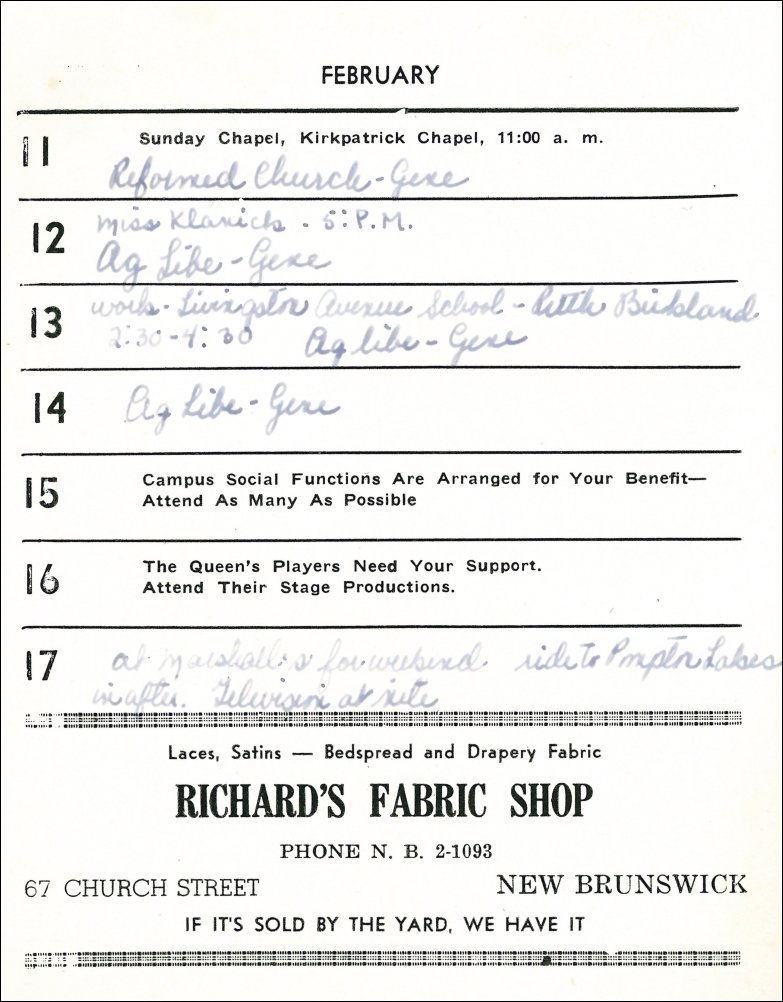 FEBRUARY
11
Sunday Chapel, Kirkpatrick Chapel, 11:00 a. m.
Reformed Church - Gene
12
Miss Klanick - 5: P.M.
Ag Libe - Gene
13
work - Livingston Avenue School - Ruth
2:30-4:30 Ag libe - Gene
14
Ag Libe - Gene
15
Campus Social Functions Are Arranged for Your Benefit—
Attend As Many As Possible
16
The Queen's Players Need Your Support.
Attend Their Stage Productions.
17
at Marshall's for weekend ride to Pompton Lakes
in after. Television at nite
Laces, Satins — Bedspread and Drapery Fabric
RICHARD'S FABRIC SHOP
PHONE N. B. 2-1093
67 CHURCH STREET NEW BRUNSWICK
IF IT'S SOLD BY THE YARD, WE HAVE IT